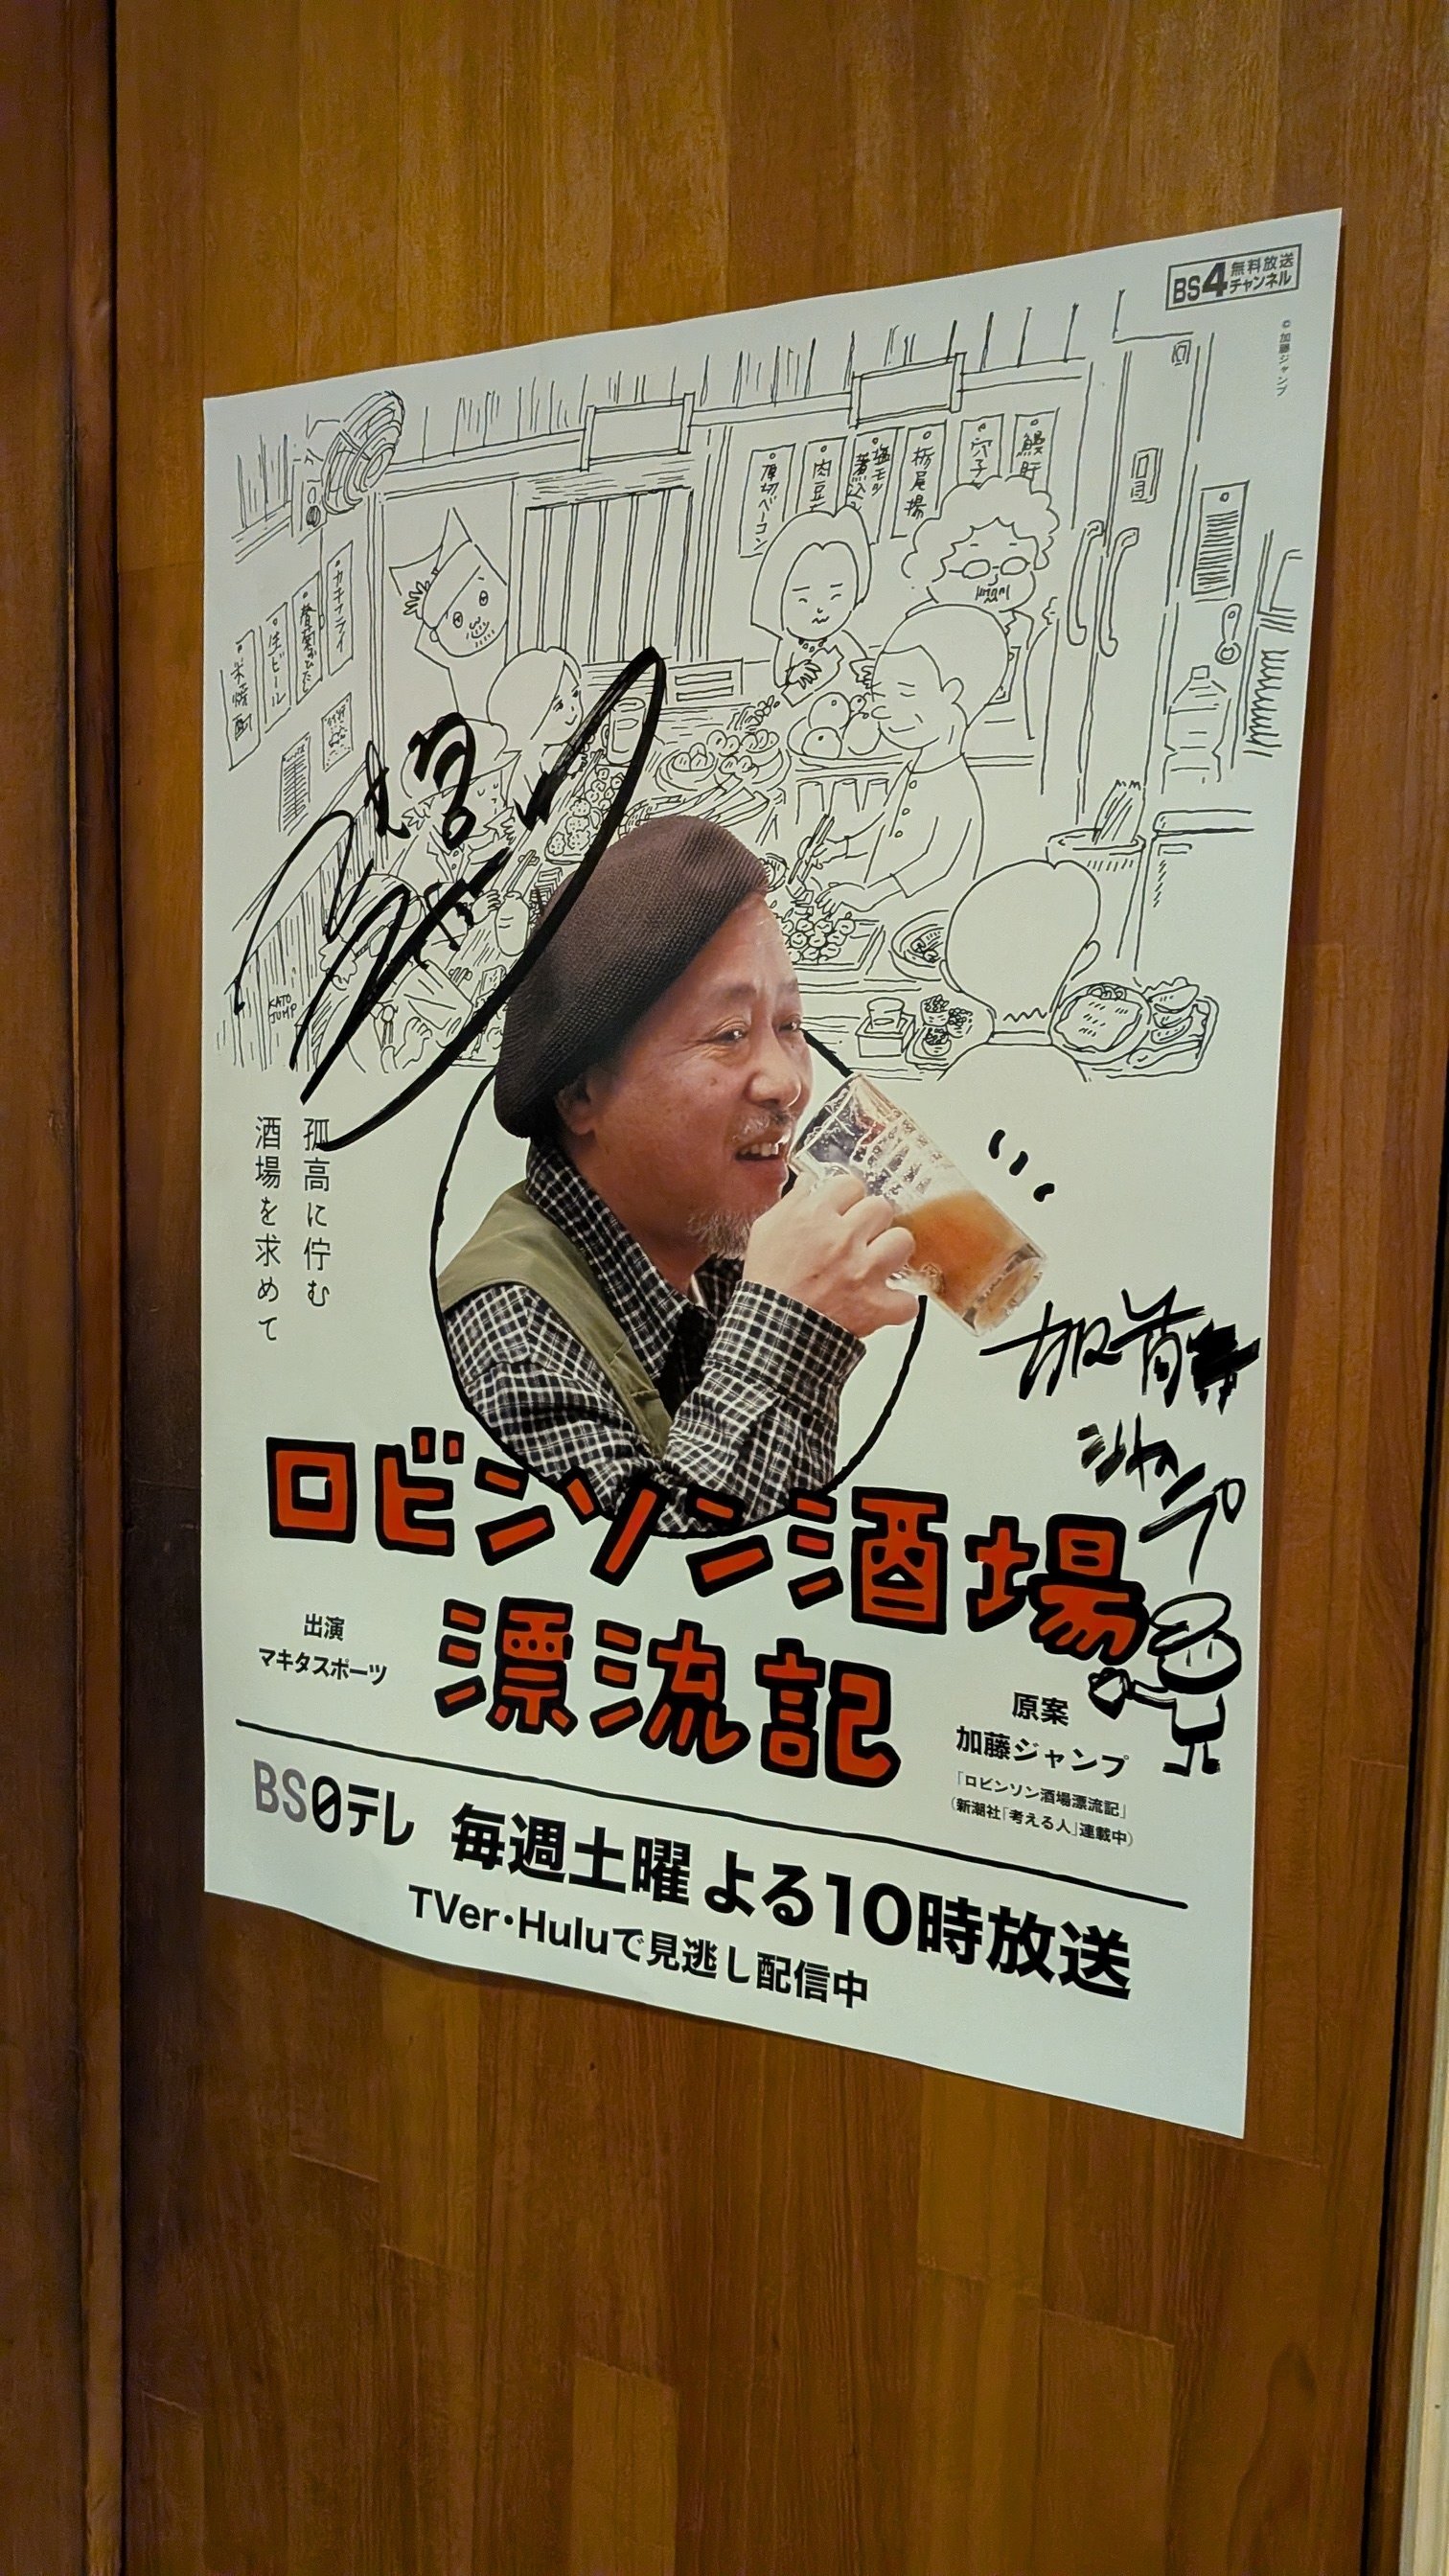 BS4 無料放送
チャンネル
©加藤ジャンプ
厚切ベーコン
肉豆
塩モツ
煮込み
栃尾揚
穴子
鰻肝
カキフライ
生ビール
米焼酎
KATO
JUMP
孤高に佇む
酒場を求めて
加藤
ジャンプ
ロビンソン酒場
漂流記
出演
マキタスポーツ
原案
加藤ジャンプ
「ロビンソン酒場漂流記」
(新潮社「考える人」連載中)
BS日テレ 毎週土曜よる10時放送
TVer・Huluで見逃し配信中